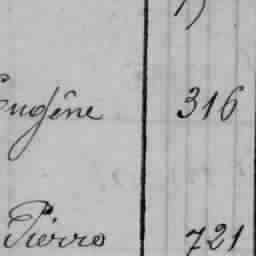 Eugène 316
Pierre 721